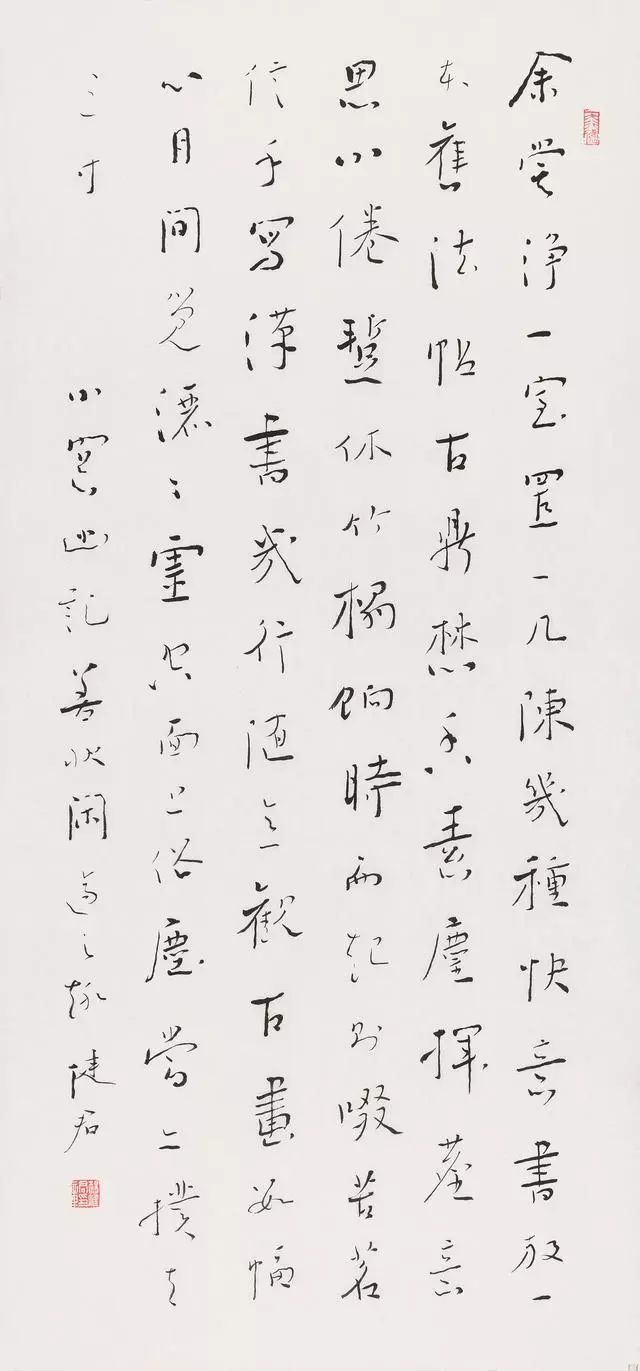 余嘗淨一室置一几陳幾種快意書放一
本舊法帖古鼎焚香素麈揮塵意
思小倦暫休竹榻餉時而起則啜苦茗
信手寫漢書幾行隨意觀古畫數幅
心目間覺灑々靈空面上俗塵當亦撲去
三寸 小窻幽記善狀閑適之趣